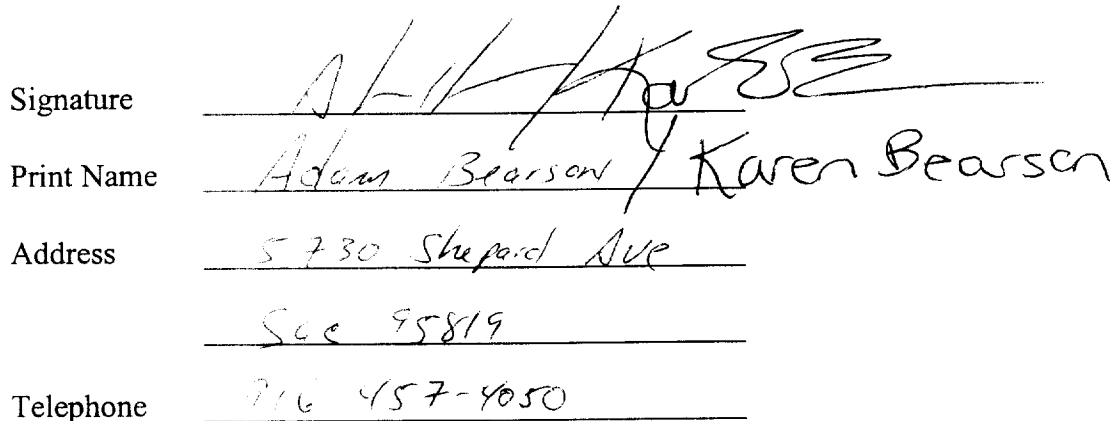 Signature
Print Name Adam Bearson / Karen Bearson
Address 5730 Shepard Ave
Sac 95819
Telephone 916 457-4050